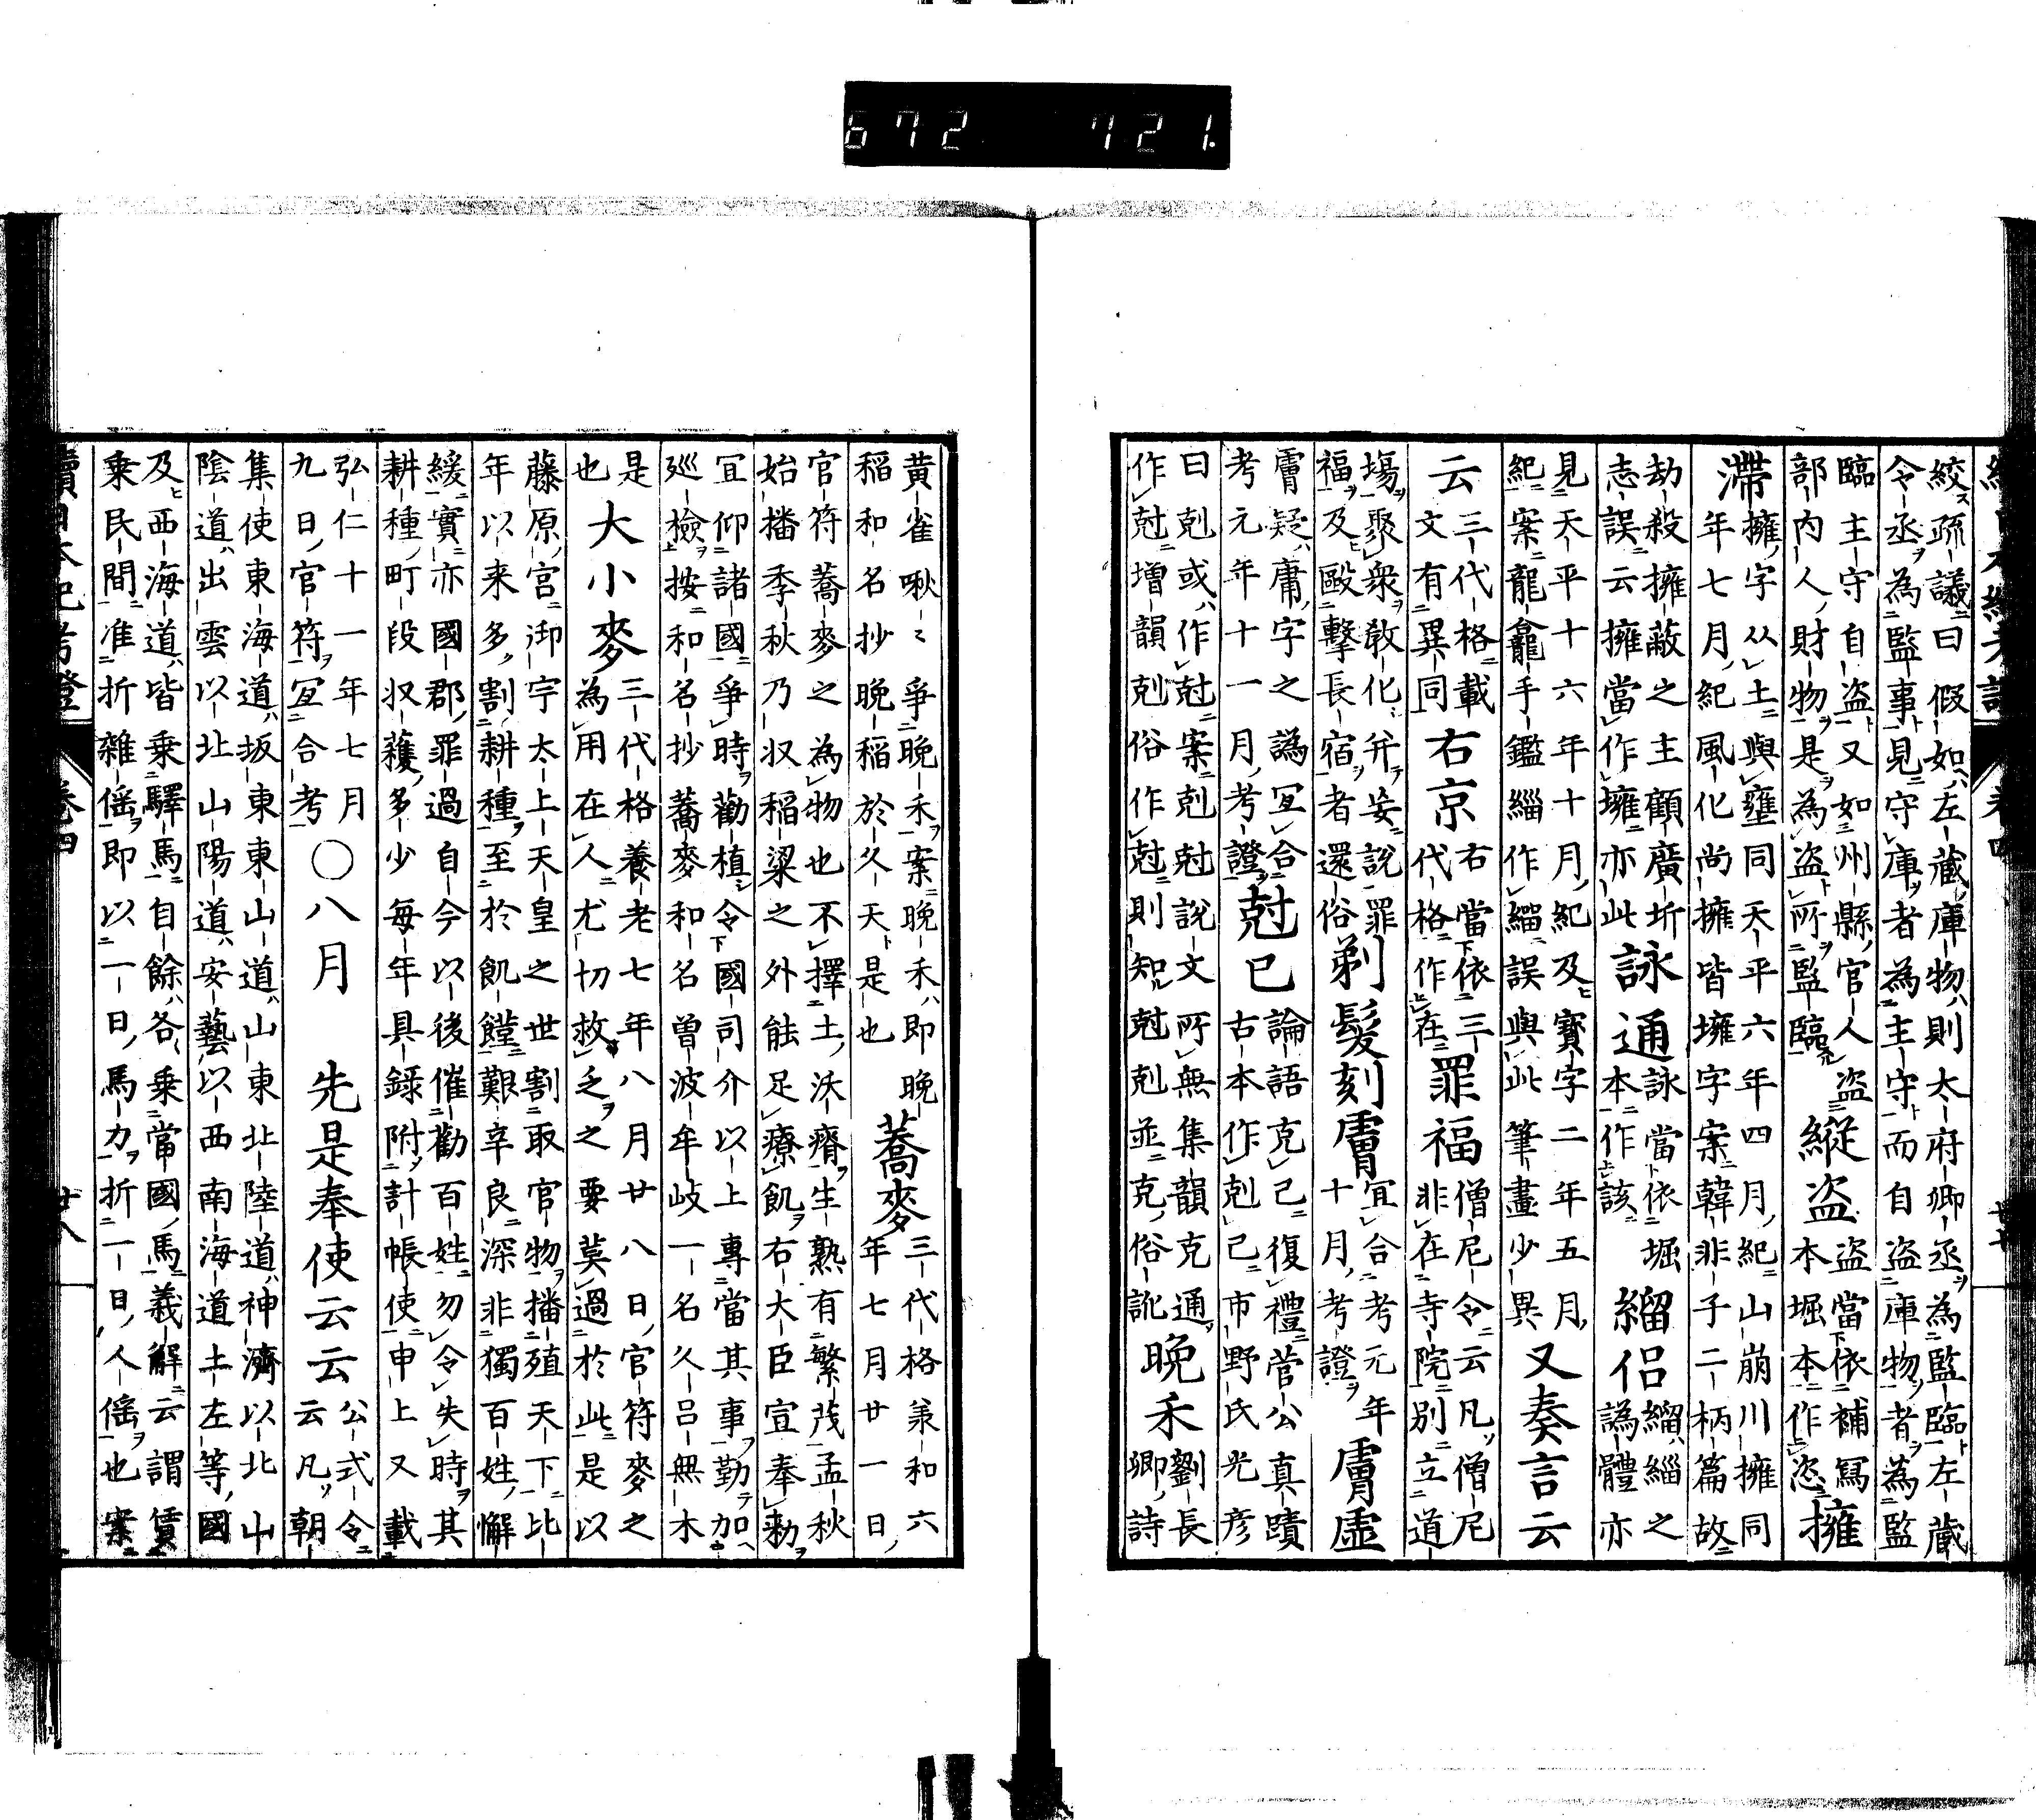 672 721.
絞疏議曰假如左藏庫物則太府卿丞為監臨左藏
令丞為監事見守庫者為主守而自盗庫物者為監
臨主守自盗又如州縣官人盗
部内人財物是為盗所監臨
縱盗
盗當依補冩
本堀本作恣
擁
滯
擁字从土與壅同天平六年四月紀山崩川擁同
年七月紀風化尚擁皆壅字案韓非子二柄篇故
劫殺擁蔽之主顧廣圻
志誤云擁當作壅亦此
詠通
詠當依堀
本作該
緇侶
緇緇之
譌體亦
見天平十六年十月紀及寶字二年五月
紀案龍龕手鑑緇作緇誤與此筆畫少異
又奏言云
云
三代格載
文有異同
右京
右當依三
代格作在
罪福
僧尼令云凡僧尼
非在寺院別立道
塲聚衆教化并妄説罪
福及毆擊長宿者還俗
剃髮刻膚
宜合考元年
十月考證
膚虛
膚疑庸字之譌宜合
考元年十一月考證
尅已
論語克己復禮菅公真蹟
古本作剋己市野氏光彦
曰剋或作尅案剋尅説文所無集韻克通
作尅増韻剋俗作尅則知尅剋並克俗訛
晩禾
劉長
卿詩
黄雀啾〻爭晩禾案晩禾即晩
稲和名抄晩稲於久天是也
蕎麥
三代格兼和六
年七月廿一日
官符蕎麥之為物也不擇土沃瘠生熟有繁茂孟秋
始播季秋乃収稲粱之外能足療飢右大臣宣奉勅
宜仰諸國爭時勸植令國司介以上專當其事勤加
巡檢按和名抄蕎麥和名曽波牟岐一名久呂無木
是
也
大小麥
三代格養老七年八月廿八日官符麥之
為用在人尤切救乏之要莫過於此是以
藤原宮御宇太上天皇之世割取官物播殖天下比
年以来多割耕種至於飢饉艱辛良深非獨百姓懈
緩實亦國郡罪過自今以後催勸百姓勿令失時其
耕種町段収穫多少毎年具録附計帳使申上又載
弘仁十一年七月
九日官符宜合考
〇八月　先是奉使云云
公式令
云凡朝
集使東海道坂東東山道山東北陸道神濟以北山
陰道出雲以北山陽道安藝以西南海道土左等國
及西海道皆乗驛馬自餘各乗當國馬義解云謂賃
乗民間准折雜傜即以一日馬力折一日人傜也案
續日本紀考證　卷四　廿八